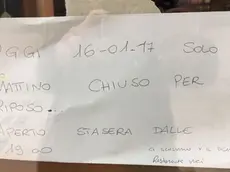 OGGI 16-01-17 SOLO
MATTINO CHIUSO PER
RIPOSO..
APERTO STASERA DALLE
19.00